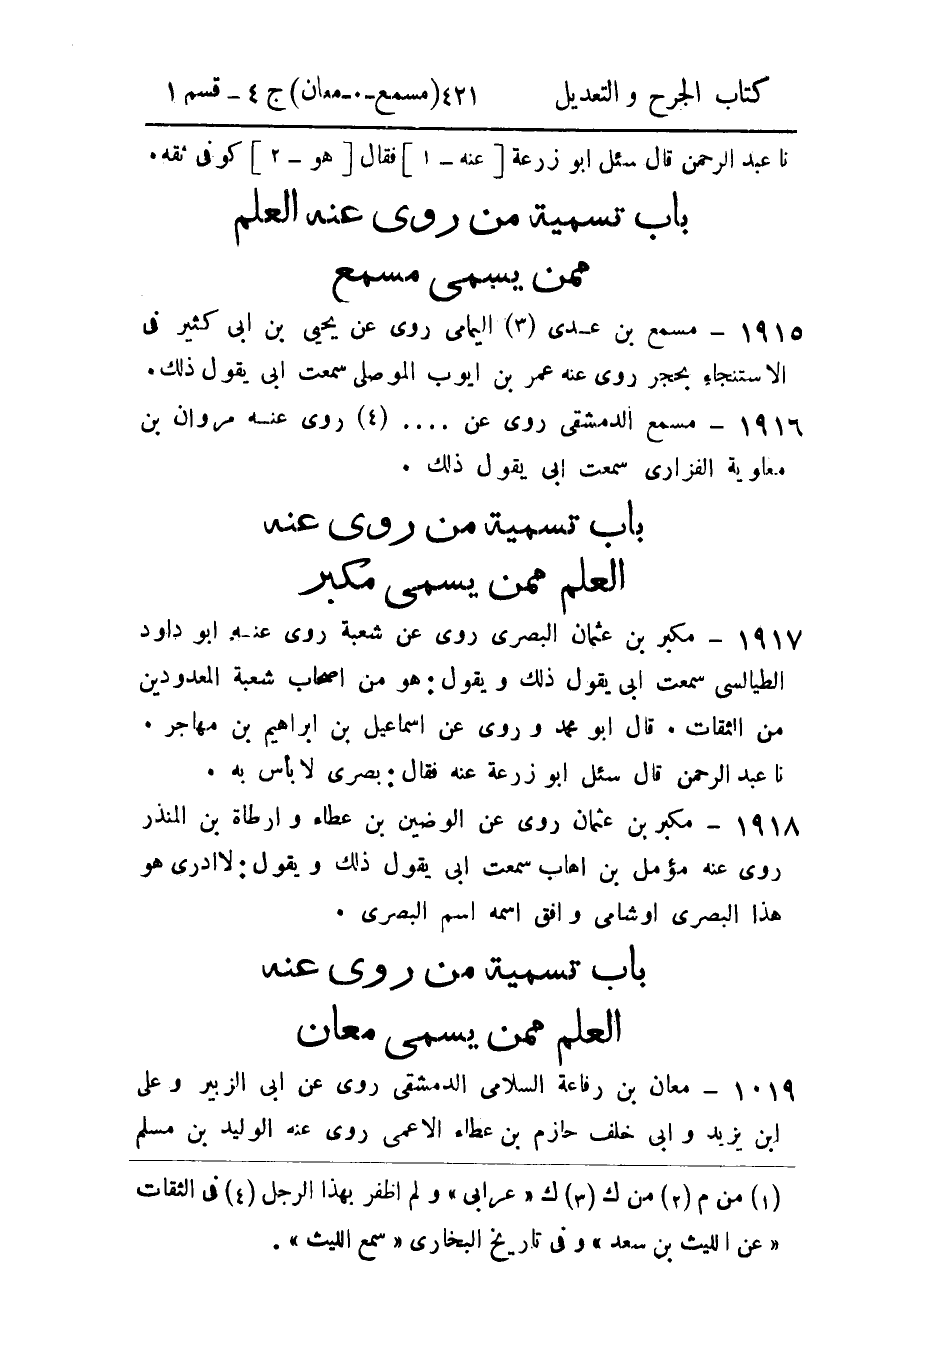 كتاب الجرح و التعديل ٤٢١ (مسمع-٠-معان) ج ٤ - قسم ١
نا عبد الرحمن قال سئل ابو زرعة [ عنه - ١ ] فقال [ هو - ٢ ] كوفى ثقه .
باب تسمية من روى عنه العلم
ممن يسمى مسمع
١٩١٥ - مسمع بن عـدى (٣) اليمامى روى عن يحيى بن ابى كثير فى
الاستنجاء بحجر روى عنه عمر بن ايوب الموصلى سمعت ابى يقول ذلك .
١٩١٦ - مسمع الدمشقى روى عن .... (٤) روى عنـه مروان بن
معاوية الفزارى سمعت ابى يقول ذلك .
باب تسمية من روى عنه
العلم ممن يسمى مكبر
١٩١٧ - مكبر بن عثمان البصرى روى عن شعبة روى عنـه ابو داود
الطيالسى سمعت ابى يقول ذلك و يقول : هو من اصحاب شعبة المعدودين
من الثقات . قال ابو محمد و روى عن اسماعيل بن ابراهيم بن مهاجر .
نا عبد الرحمن قال سئل ابو زرعة عنه فقال : بصرى لا بأس به .
١٩١٨ - مكبر بن عثمان روى عن الوضين بن عطاء و ارطاة بن المنذر
روى عنه مؤمل بن اهاب سمعت ابى يقول ذلك و يقول : لا ادرى هو
هذا البصرى او شامى وافق اسمه اسم البصرى .
باب تسمية من روى عنه
العلم ممن يسمى معان
١٠١٩ - معان بن رفاعة السلامى الدمشقى روى عن ابى الزبير و على
ابن يزيد و ابى خلف حازم بن عطاء الاعمى روى عنه الوليد بن مسلم
(١) من م (٢) من ك (٣) ك « عرابى » و لم اظفر بهذا الرجل (٤) فى الثقات
« عن الليث بن سعد » و فى تاريخ البخارى « سمع الليث » .